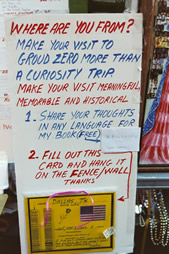 WHERE ARE YOU FROM?
MAKE YOUR VISIT TO
GROUD ZERO MORE THAN
A CURIOSITY TRIP
MAKE YOUR VISIT MEANINGFUL,
MEMORABLE AND HISTORICAL
1. SHARE YOUR THOUGHTS
IN ANY LANGUAGE FOR
MY BOOK (FREE)
2. FILL OUT THIS
CARD AND HANG IT
ON THE FENCE/WALL
THANKS
DALLAS, TX